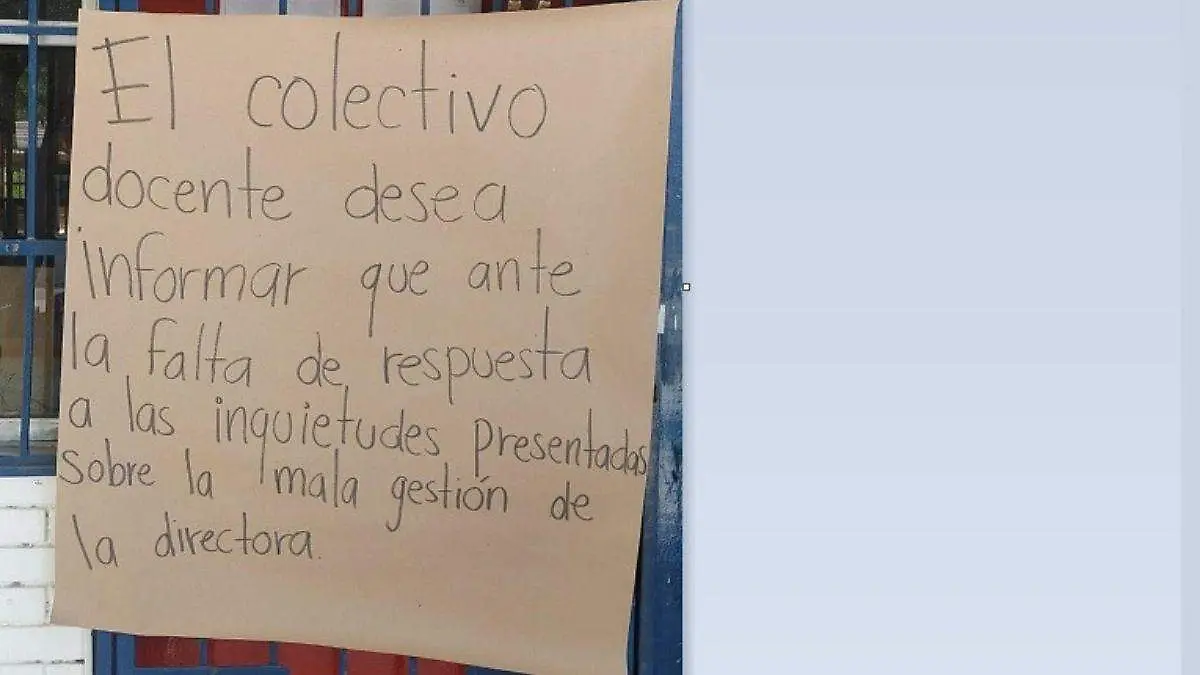 El colectivo
docente desea
informar que ante
la falta de respuesta
a las inquietudes presentadas
sobre la mala gestión de
la directora.